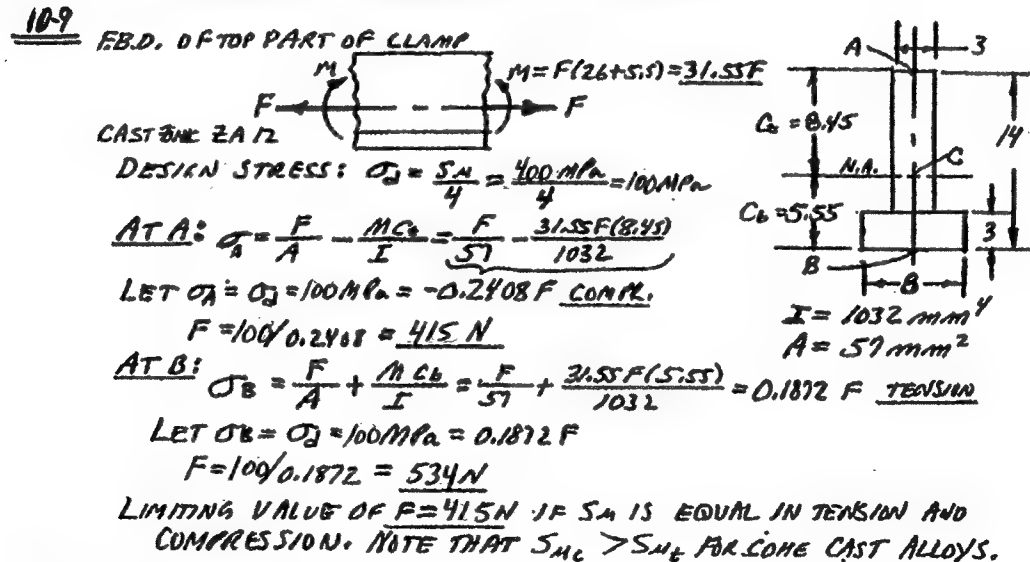 10-9 F.B.D. OF TOP PART OF CLAMP
M
M = F(26+5.5) = 31.55F
F F
CAST ZINC ZA12
DESIGN STRESS: σd = Su/4 = 400 MPa/4 = 100 MPa
AT A: σA = F/A - MCt/I = F/57 - 31.55F(8.45)/1032
LET σA = σd = 100 MPa = -0.2408 F COMPR.
F = 100/0.2408 = 415 N
AT B: σB = F/A + MCb/I = F/57 + 31.55F(5.55)/1032 = 0.1872 F TENSION
LET σB = σd = 100 MPa = 0.1872 F
F = 100/0.1872 = 534 N
LIMITING VALUE OF F = 415N IF Su IS EQUAL IN TENSION AND
COMPRESSION. NOTE THAT Suc > Sut FOR SOME CAST ALLOYS.
A 3
Ct = 8.45
14
N.A. C
Cb = 5.55
3
B
8
I = 1032 mm⁴
A = 57 mm²